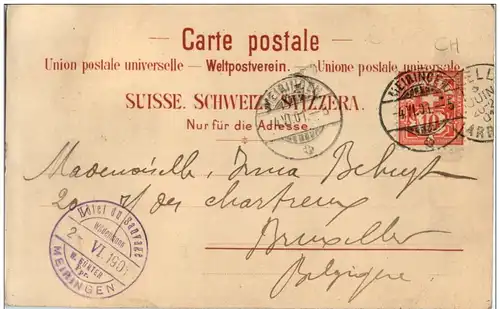 CH
Carte postale
Union postale universelle. — Weltpostverein. — Unione postale universale.
SUISSE. SCHWEIZ. SVIZZERA.
Nur für die Adresse.
MEIRINGEN
-4.VI.01.-5
MEIRINGEN
-4.VI.01.-5
10
Mademoiselle, Irma
20 rue des chartreux
Bruxelles
Belgique
Hôtel du Sauvage
Wildenmann
2- VI. 1901
MEIRINGEN